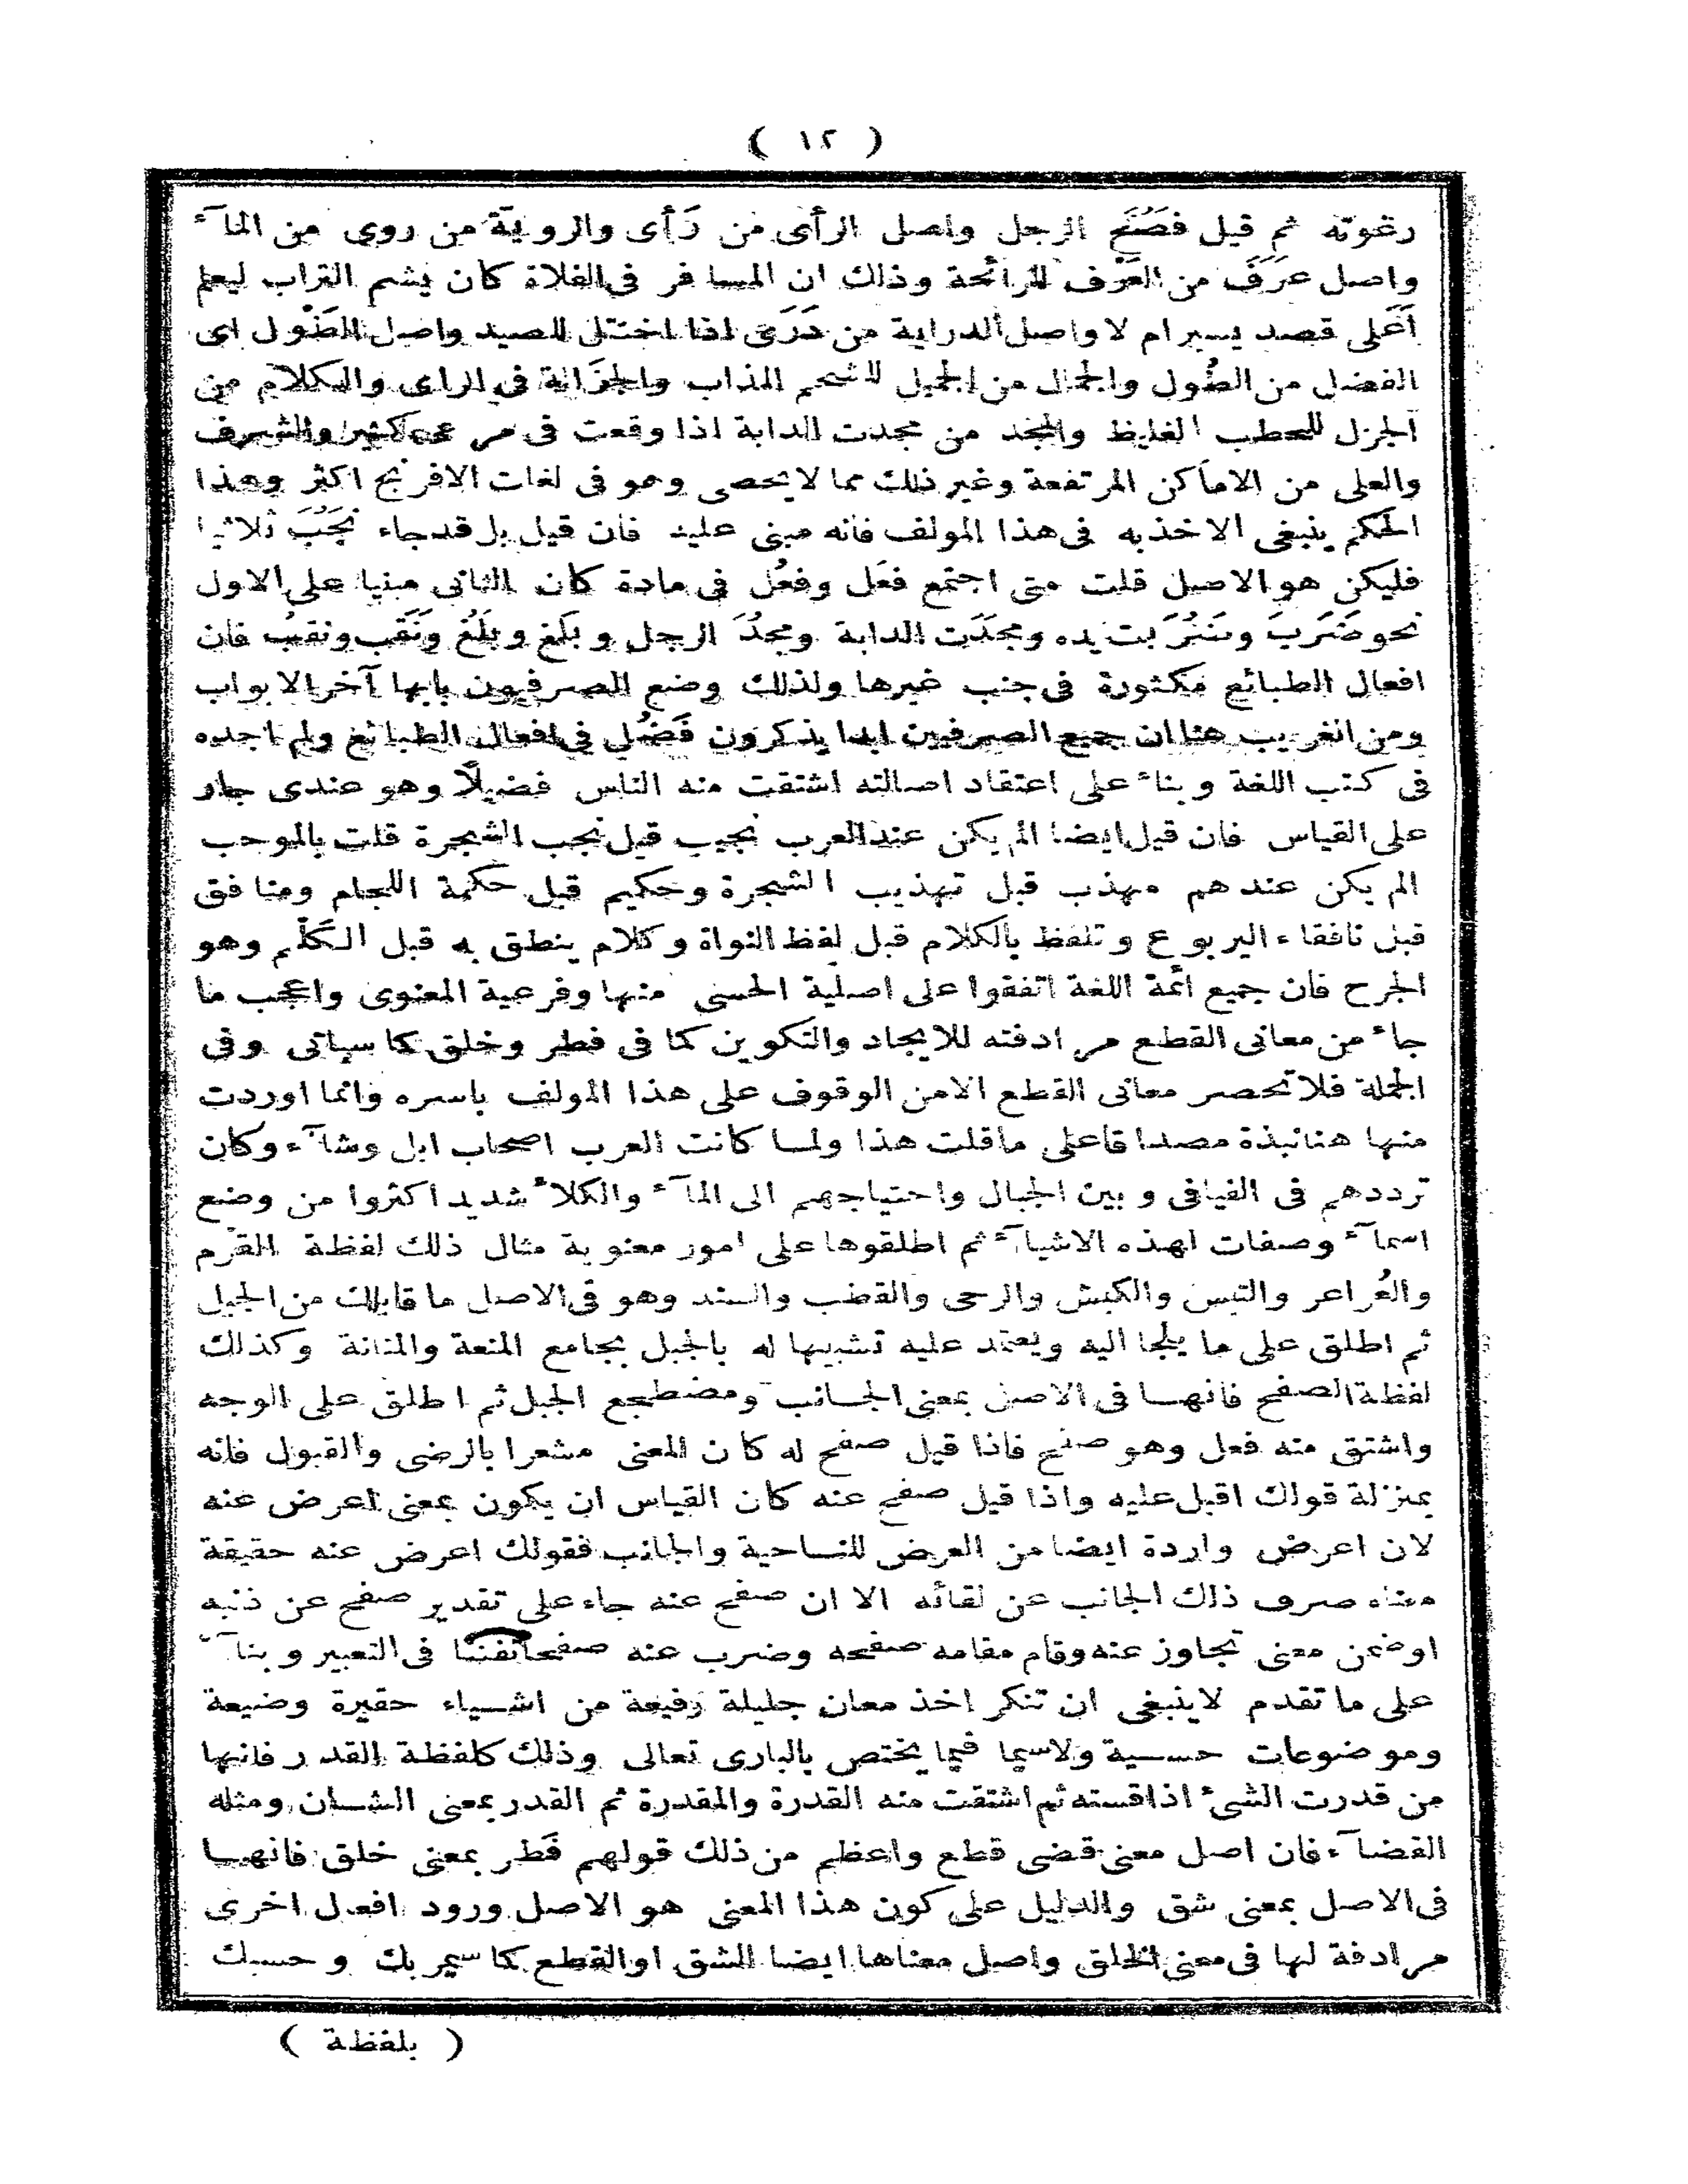 ( ١٢ )
رغوته ثم قيل فصُحَ الرجل واصل الرأى من رَأى والروية من روى من المآء
واصل عرَفَ من العَرْف للرائحة وذلك ان المسافر فى الفلاة كان يشم التراب ليعلم
أعلى قصد يسير ام لا واصل الدراية من دَرَى اذا اختتل للصيد واصل الطَوْل اى
الفضل من الطُول والجمال من الجميل للشحم المذاب والجزالة فى الراى والكلام من
الجزل للحطب الغليظ والمجد من مجدت الدابة اذا وقعت فى مرعى كثير والشرف
والعلى من الاماكن المرتفعة وغير ذلك مما لا يحصى وهو فى لغات الافرنج اكثر وهذا
الحكم ينبغى الاخذ به فى هذا المولف فانه مبنى عليه فان قيل بل قد جاء نجَبُ ثلاثيا
فليكن هو الاصل قلت متى اجتمع فعَل وفعُل فى مادة كان الثانى مبنيا على الاول
نحو ضَرَبَ وضَرُبت يده ومجَدَت الدابة ومجُدَ الرجل وبلَغ وبلُغ ونَقَب ونقُب فان
افعال الطبائع مكثورة فى جنب غيرها ولذلك وضع الصرفيون بابها آخر الابواب
ومن الغريب هنا ان جميع الصرفيين ابدا يذكرون فَضُل فى افعال الطبائع ولم اجده
فى كتب اللغة وبناء على اعتقاد اصالته اشتقت منه الناس فضيلًا وهو عندى جار
على القياس فان قيل ايضا الم يكن عند العرب نجيب قبل نجب الشجرة قلت بالموجب
الم يكن عندهم مهذب قبل تهذيب الشجرة وحكيم قبل حكمة اللجام ومنافق
قبل نافقاء اليربوع وتلفظ بالكلام قبل لفظ النواة وكلام ينطق به قبل الكَلْم وهو
الجرح فان جميع ائمة اللغة اتفقوا على اصلية الحسى منها وفرعية المعنوى واعجب ما
جاء من معانى القطع مرادفته للايجاد والتكوين كما فى فطر وخلق كما سيأتى وفى
الجملة فلا تحصر معانى القطع الا من الوقوف على هذا المولف باسره وانما اوردت
منها هنا نبذة مصداقا على ما قلت هذا ولما كانت العرب اصحاب ابل وشآء وكان
ترددهم فى الفيافى وبين الجبال واحتياجهم الى المآء والكلاء شديد اكثروا من وضع
اسمآء وصفات لهذه الاشيآء ثم اطلقوها على امور معنوية مثال ذلك لفظة القرم
والعُراعر والتيس والكبش والرحى والقطب والسند وهو فى الاصل ما قابلك من الجبل
ثم اطلق على ما يلجا اليه ويعتمد عليه تشبيها له بالجبل بجامع المنعة والمتانة وكذلك
لفظة الصفح فانها فى الاصل بمعنى الجانب ومضطجع الجبل ثم اطلق على الوجه
واشتق منه فعل وهو صفح فاذا قيل صفح له كان المعنى مشعرا بالرضى والقبول فانه
بمنزلة قولك اقبل عليه واذا قيل صفح عنه كان القياس ان يكون بمعنى اعرض عنه
لان اعرض واردة ايضا من العرض للناحية والجانب فقولك اعرض عنه حقيقة
معناه صرف ذلك الجانب عن لقائه الا ان صفح عنه جاء على تقدير صفح عن ذنبه
او ضمن معنى تجاوز عنه وقام مقامه صفحه وضرب عنه صفحا تفننا فى التعبير وبنآء
على ما تقدم لا ينبغى ان تنكر اخذ معان جليلة رفيعة من اشياء حقيرة وضيعة
وموضوعات حسية ولاسيما فيما يختص بالبارى تعالى وذلك كلفظة القدر فانها
من قدرت الشىء اذا قسته ثم اشتقت منه القدرة والمقدرة ثم القدر بمعنى الشان ومثله
القضآء فان اصل معنى قضى قطع واعظم من ذلك قولهم فَطر بمعنى خلق فانها
فى الاصل بمعنى شق والدليل على كون هذا المعنى هو الاصل ورود افعال اخرى
مرادفة لها فى معنى الخلق واصل معناها ايضا الشق او القطع كما سيمر بك وحسبك
( بلفظة )